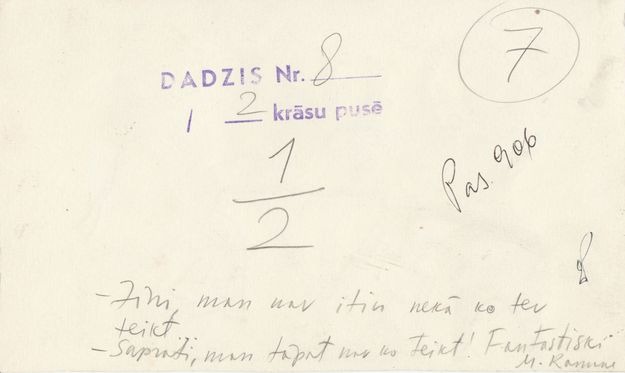 7
DADZIS Nr. 8
1 2 krāsu pusē
1/2
Pas. 906
8
- Zini, man nav itin nekā ko tev
teikt.
- Saproti, man tāpat nav ko teikt! Fantastiski
M.